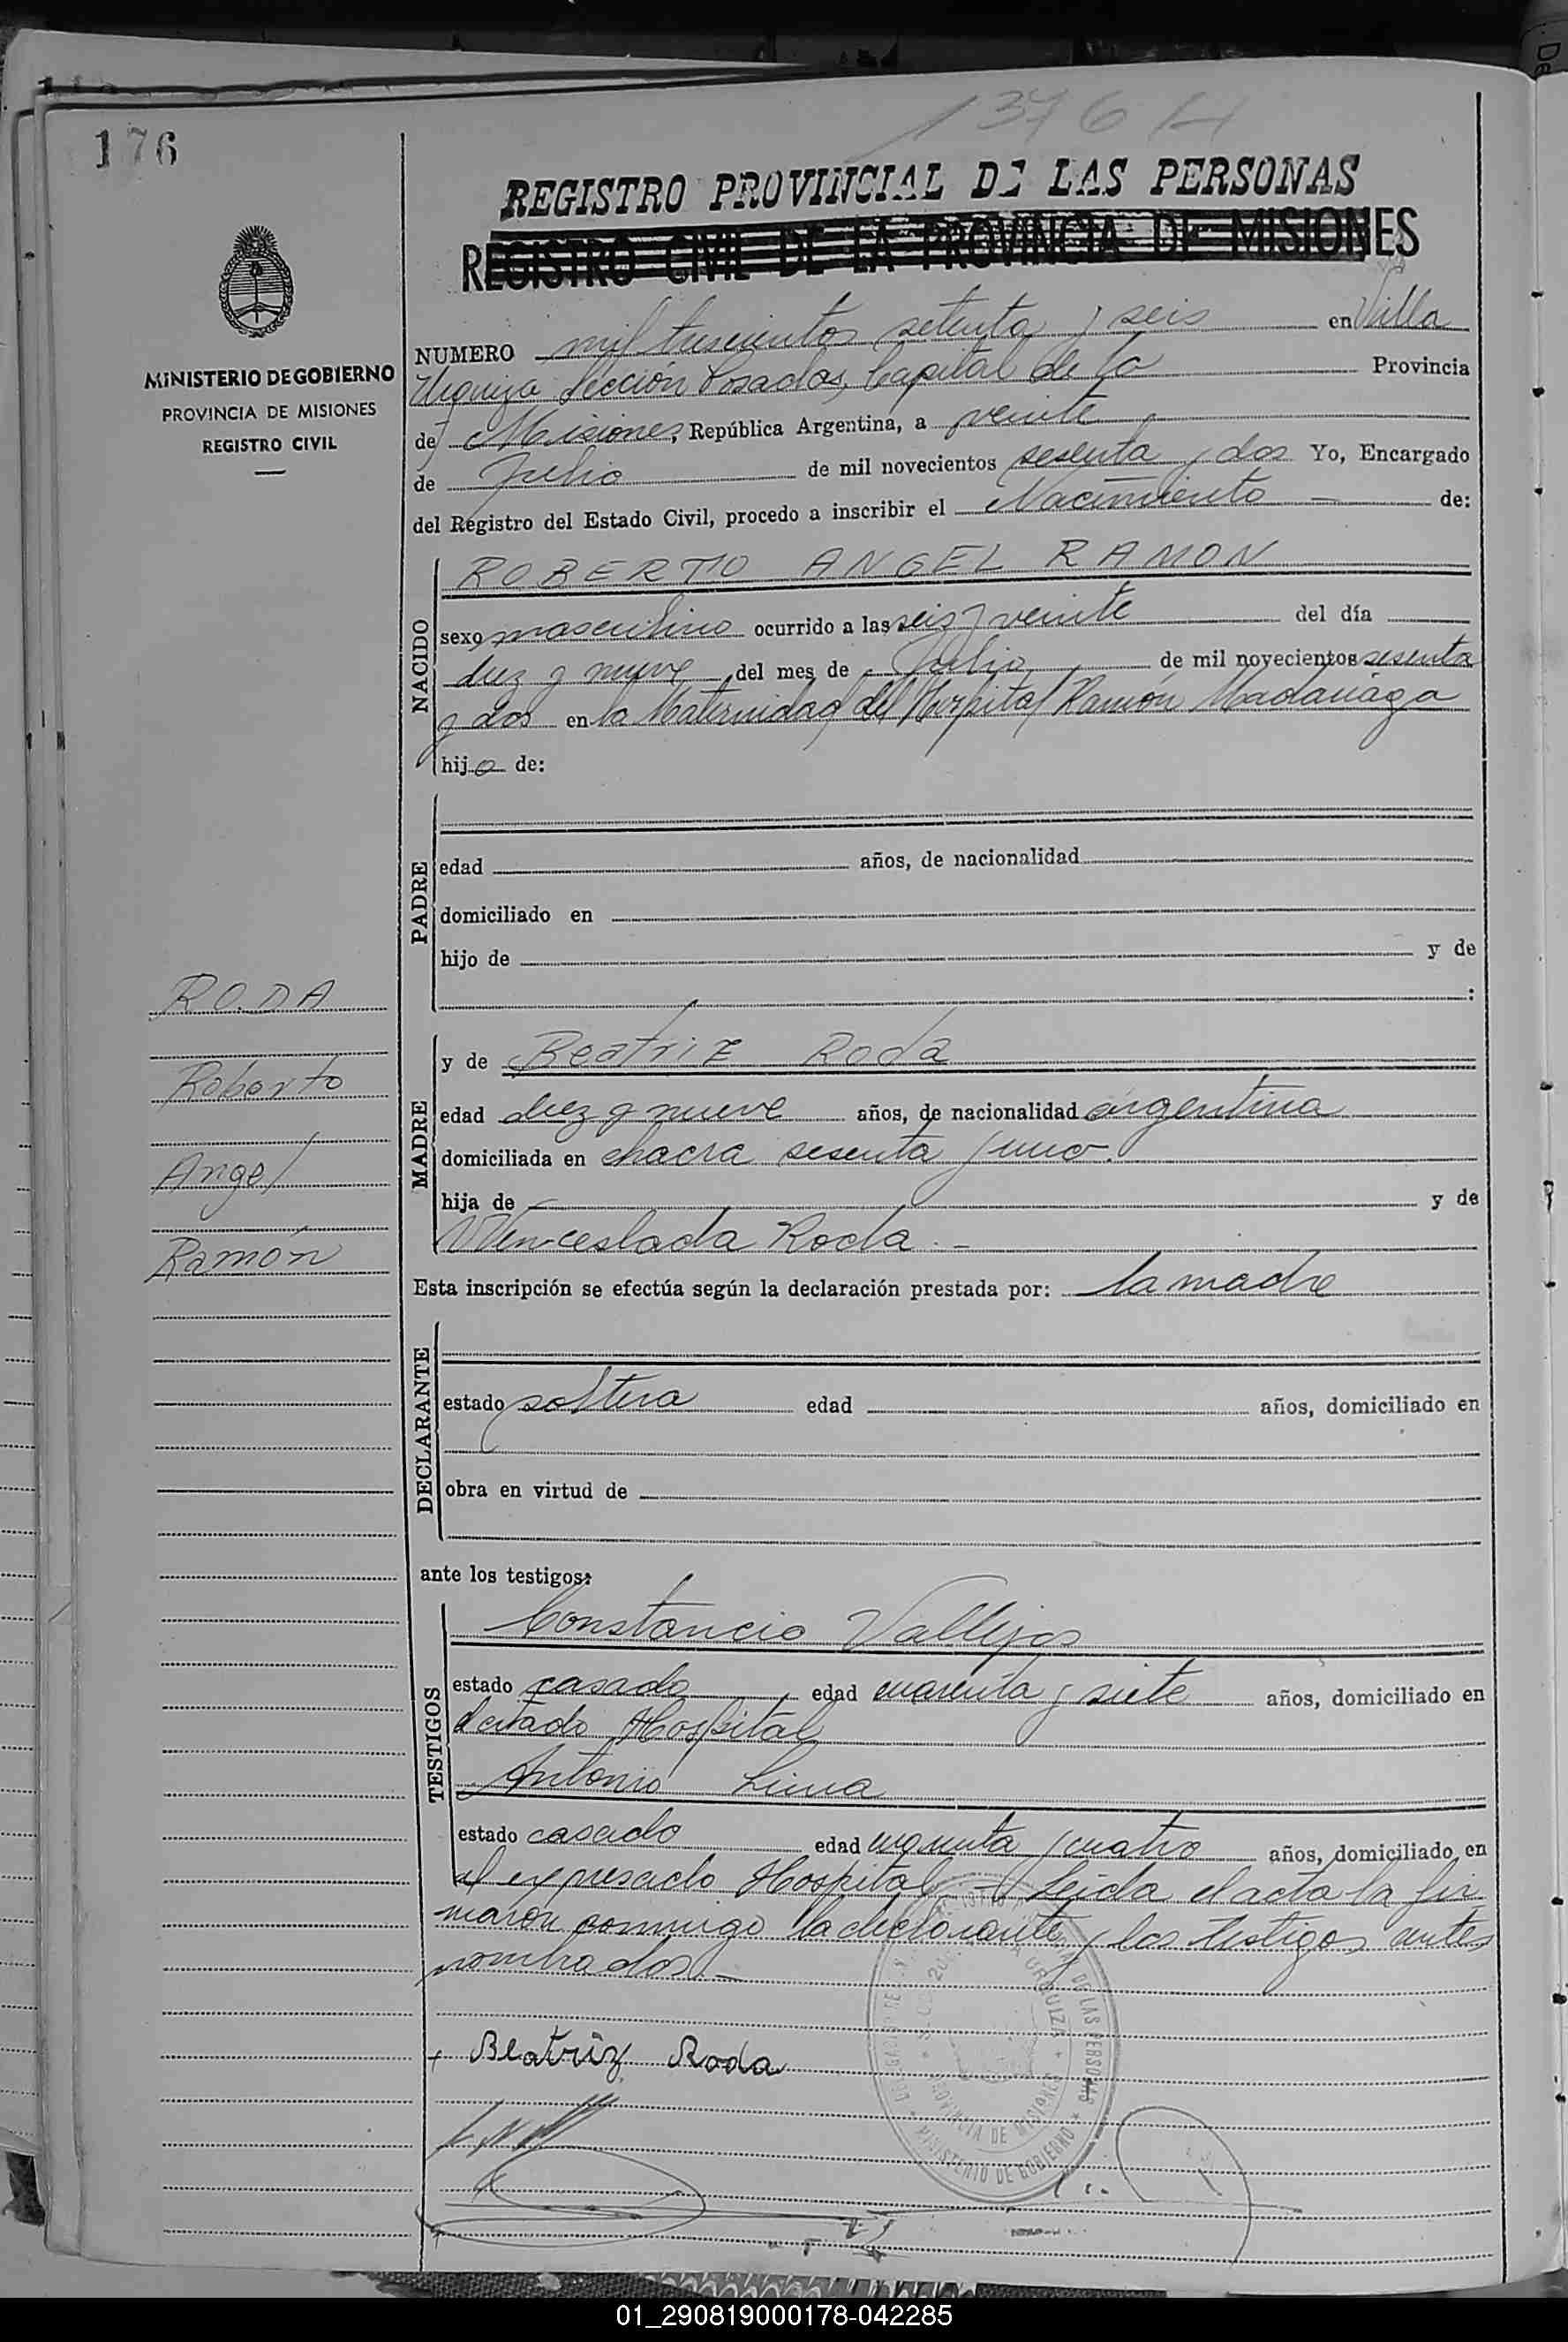 1376 H
176
REGISTRO PROVINCIAL DE LAS PERSONAS
REGISTRO CIVIL DE LA PROVINCIA DE MISIONES
MINISTERIO DE GOBIERNO
PROVINCIA DE MISIONES
REGISTRO CIVIL
NUMERO mil trescientos setenta y seis en Villa
Urquiza Sección Posadas, Capital de la Provincia
de Misiones, República Argentina, a veinte
de Julio de mil novecientos sesenta y dos Yo, Encargado
del Registro del Estado Civil, procedo a inscribir el Nacimiento - de:
NACIDO
ROBERTO ANGEL RAMON
sexo masculino ocurrido a las seis y veinte del día
diez y nueve del mes de Julio de mil novecientos sesenta
y dos en la Maternidad del Hospital Ramón Madariaga
hijo de:
PADRE
edad años, de nacionalidad
domiciliado en
hijo de y de
:
RODA
Roberto
Angel
Ramón
MADRE
y de Beatriz Roda
edad diez y nueve años, de nacionalidad argentina
domiciliada en chacra sesenta y uno.
hija de y de
Wenceslada Roda. -
Esta inscripción se efectúa según la declaración prestada por: la madre
DECLARANTE
estado soltera edad años, domiciliado en
obra en virtud de
ante los testigos:
TESTIGOS
Constancio Vallejos
estado casado edad cuarenta y siete años, domiciliado en
el citado Hospital
Antonio Lima
estado casado edad cuarenta y cuatro años, domiciliado en
el expresado Hospital - Leida el acta la fir
maron conmigo la declarante y los testigos antes
nombrados. -
Beatriz Roda
DE LAS PERSONAS
URQUIZA
PROVINCIA DE MISIONES
MINISTERIO DE GOBIERNO
01_290819000178-042285